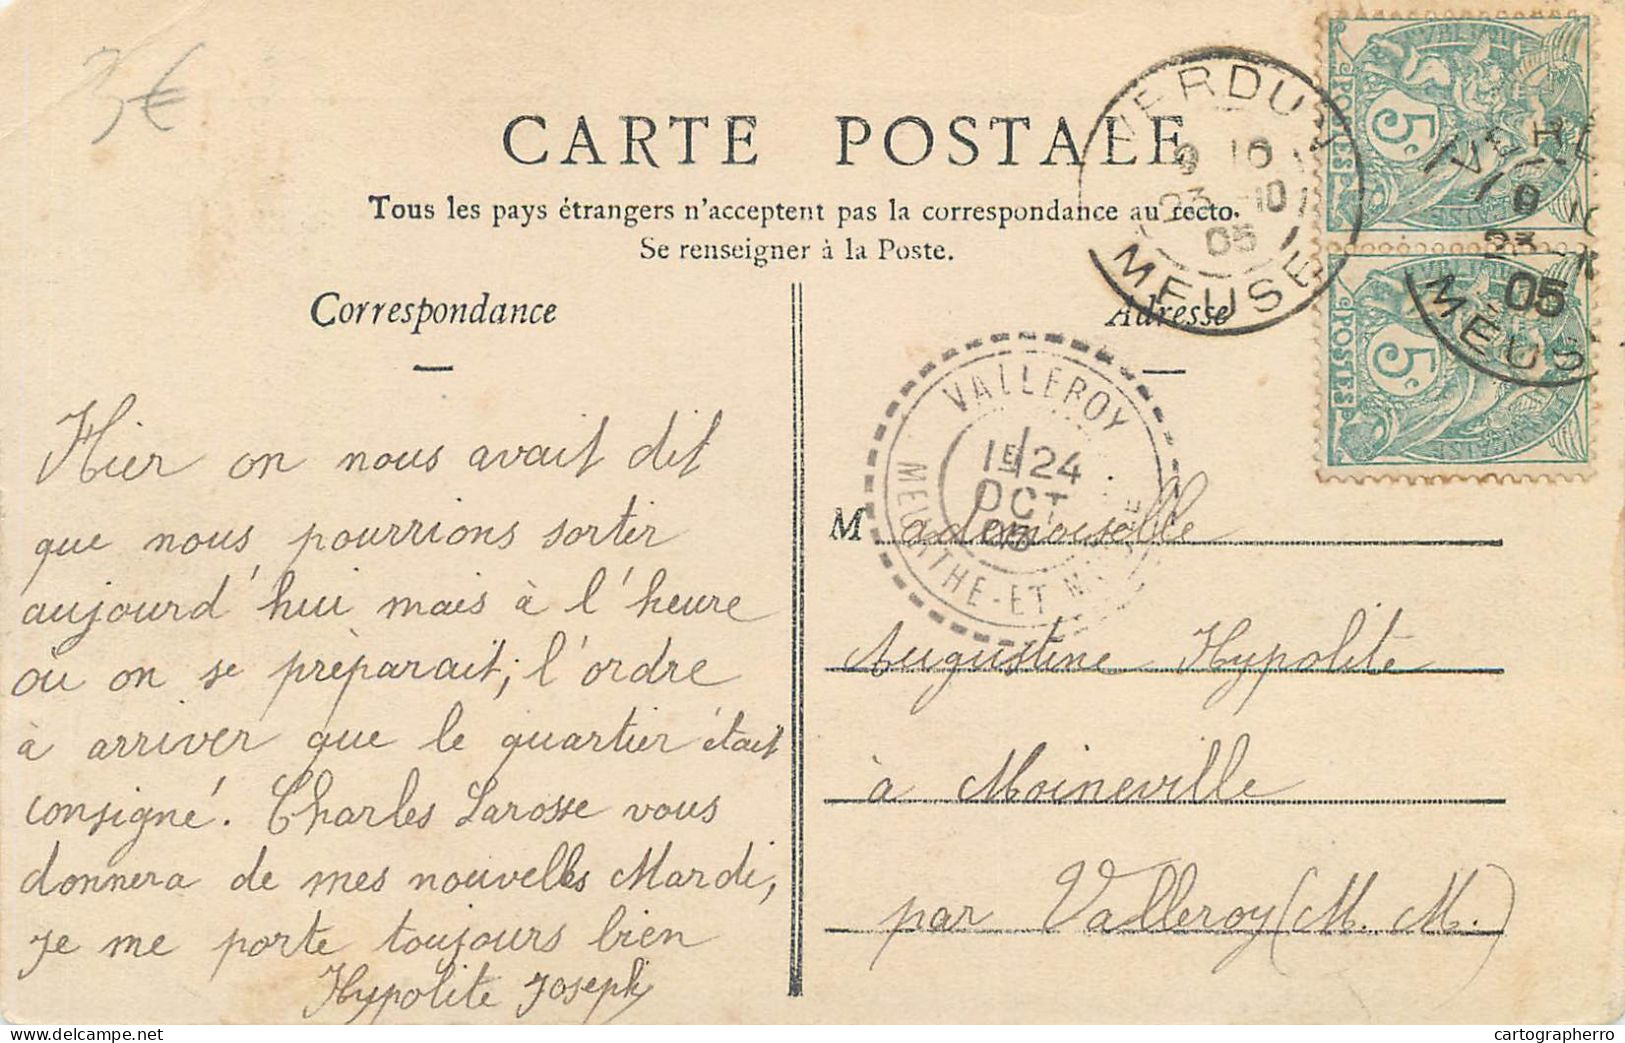 3€
CARTE POSTALE
Tous les pays étrangers n'acceptent pas la correspondance au recto.
Se renseigner à la Poste.
VERDUN
9 10
23 -10
05
MEUSE
5c
POSTES
5c
POSTES
23
05
MEUSE
Correspondance
Hier on nous avait dit
que nous pourrions sortir
aujourd'hui mais à l'heure
où on se préparait, l'ordre
à arriver que le quartier était
consigné. Charles Larosse vous
donnera de mes nouvelles Mardi,
je me porte toujours bien
Hypolite Joseph
Adresse
VALLEROY
1E 24
OCT
05
MEURTHE-ET-MOSELLE
Mademoiselle
Augustine Hypolite
à Moineville
par Valleroy (M. M.)
delcampe.net
cartographerro